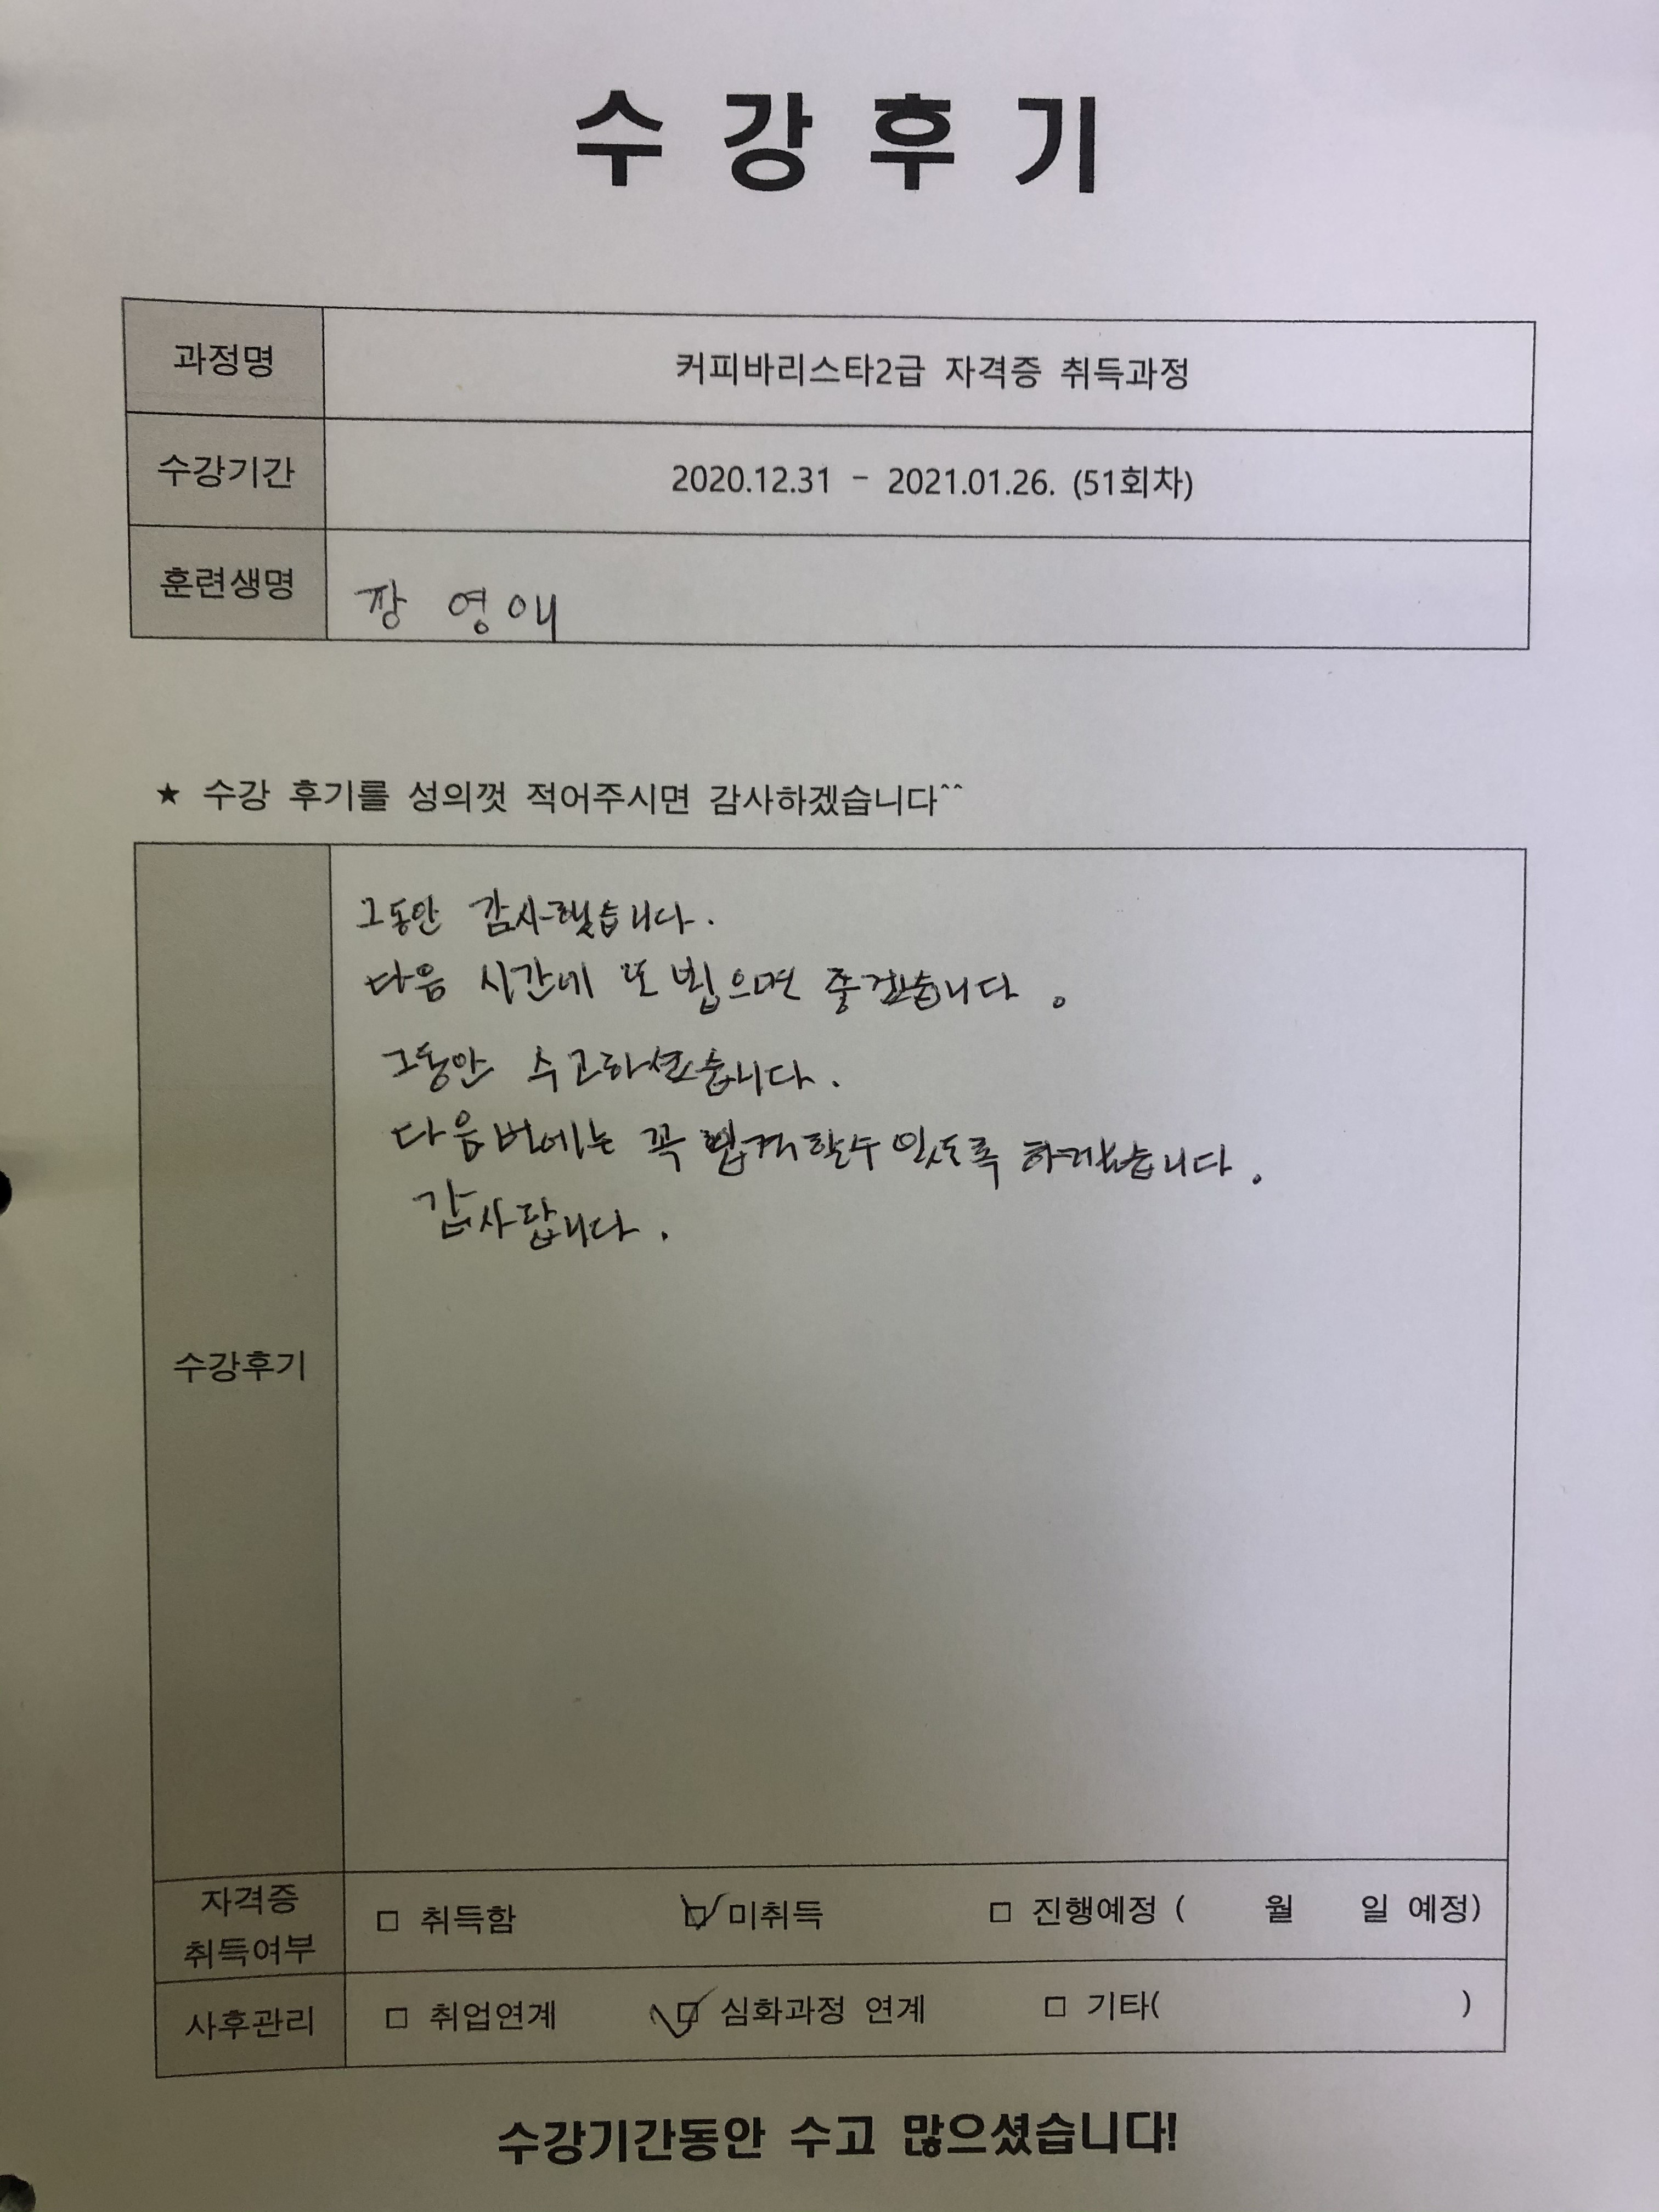 수강후기
과정명 커피바리스타2급 자격증 취득과정
수강기간 2020.12.31 - 2021.01.26. (51회차)
훈련생명 장 영애
★ 수강 후기를 성의껏 적어주시면 감사하겠습니다^^
수강후기
그동안 감사했습니다.
다음 시간에 또 뵙으면 좋겠습니다.
그동안 수고하셨습니다.
다음번에는 꼭 합격할수 있도록 하겠습니다.
감사합니다.
자격증
취득여부
□ 취득함 ☑ 미취득 □ 진행예정 ( 월 일 예정)
사후관리 □ 취업연계 ☑ 심화과정 연계 □ 기타( )
수강기간동안 수고 많으셨습니다!